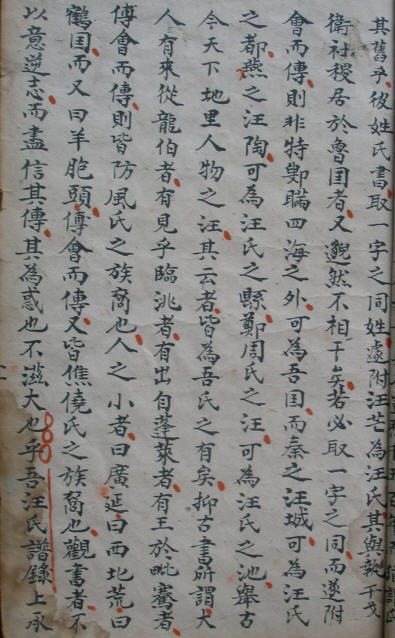 其舊乎彼姓氏書取一字之同姓遂附汪芒為汪氏其與執干戈
衛社稷居於魯国者又邈然不相干矣若必取一字之同而遂附
會而傳則非特鄋瞞四海之外可為吾国而秦之汪城可為汪氏
之都燕之汪陶可為汪氏之縣鄭周氏之汪可為汪氏之池舉古
今天下地里人物之汪其云者皆為吾氏之有矣抑古書所謂大
人有來從龍伯者有見乎臨洮者有出自蓬萊者有王於毗騫者
傅會而傳則皆防風氏之族裔也人之小者曰廣延曰西北荒曰
鶴国而又曰羊胞頭傅會而傳又皆僬僥氏之族裔也觀書者不
以意逆志而盡信其傳其為惑也不滋大也乎吾汪氏譜錄上承